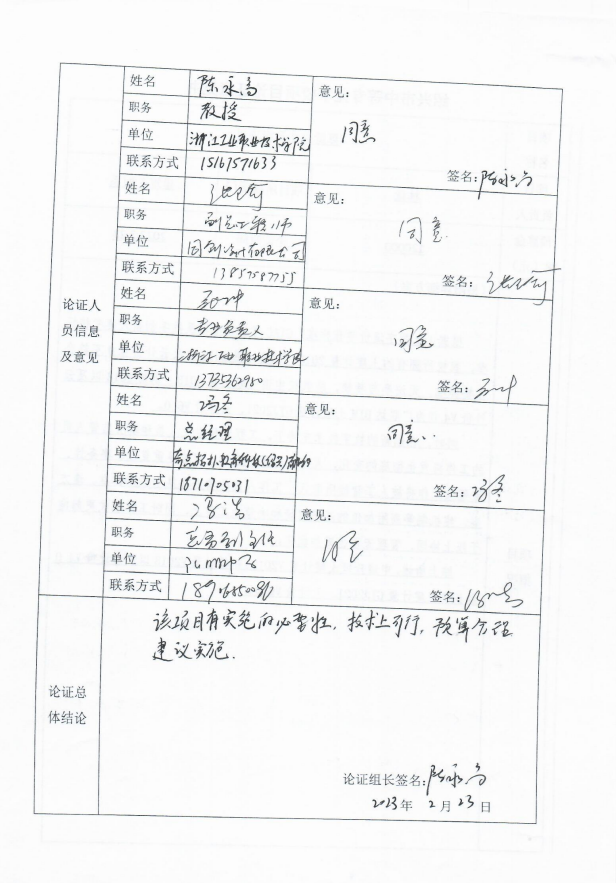 姓名 陈永高 意见：
职务 教授
同意
单位 浙江工业职业技术学院
联系方式 15167571633 签名：陈永高
姓名 意见：
职务 副总工程师
同意
单位
联系方式 13857587755 签名：
姓名 意见：
职务 专业负责人
同意
单位 浙江工业职业技术学院
联系方式 签名：
姓名 冯冬 意见：
职务 总经理
同意
单位
联系方式 18710705031 签名：冯冬
姓名 意见：
职务
同意
单位
联系方式 签名：
论证人
员信息
及意见
该项目有实施的必要性，技术上可行，预算合理
建议实施.
论证总
体结论
论证组长签名：陈永高
2023年 2月 23日